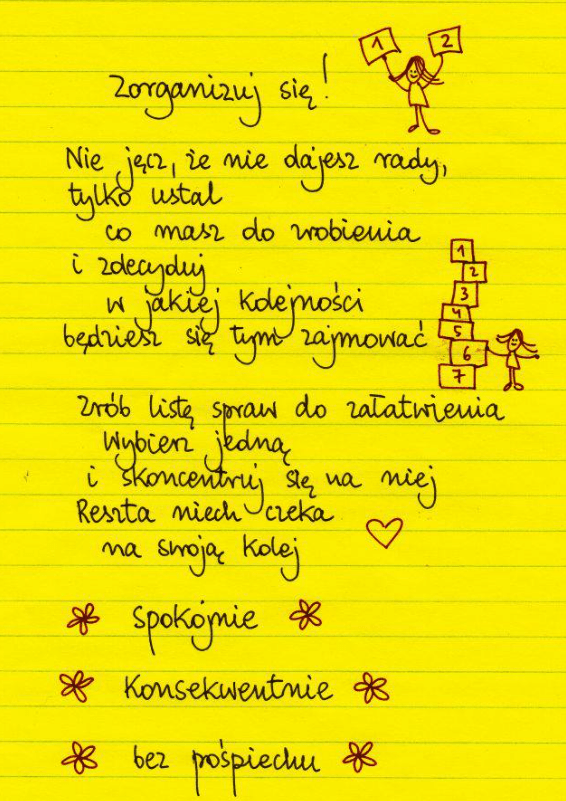 1 2
Zorganizuj się!
Nie jęcz, że nie dajesz rady,
tylko ustal
co masz do zrobienia
i zdecyduj
w jakiej kolejności
będziesz się tym zajmować
1
2
3
4
5
6
7
Zrób listę spraw do załatwienia
Wybierz jedną
i skoncentruj się na niej
Reszta niech czeka
na swoją kolej
Spokojnie
Konsekwentnie
bez pośpiechu